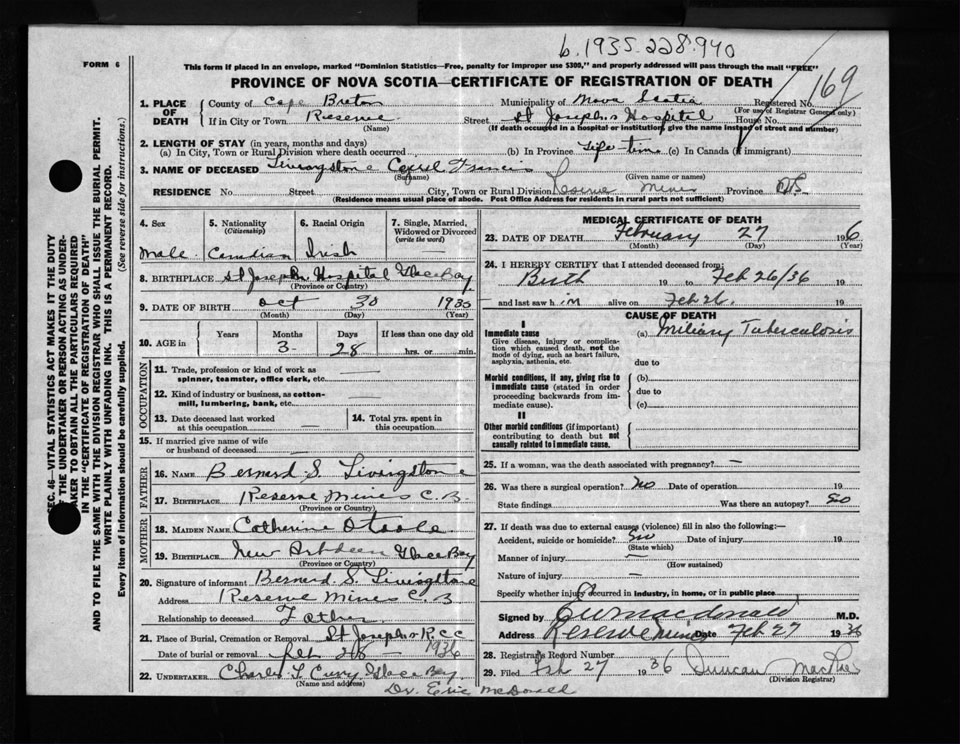 b. 1935. 228.940
FORM 6
This form if placed in an envelope, marked "Dominion Statistics—Free, penalty for improper use $300," and properly addressed will pass through the mail "FREE"
PROVINCE OF NOVA SCOTIA—CERTIFICATE OF REGISTRATION OF DEATH
169
1. PLACE OF DEATH
County of Cape Breton
Municipality of Nova Scotia Registered No.
(For use of Registrar General only)
If in City or Town Reserve Street St Joseph's Hospital House No.
(Name) (If death occurred in a hospital or institution, give the name instead of street and number)
2. LENGTH OF STAY (in years, months and days)
(a) In City, Town or Rural Division where death occurred (b) In Province Life time (c) In Canada (if immigrant)
3. NAME OF DECEASED Livingstone Francis
(Surname) (Given name or names)
RESIDENCE No. Street City, Town or Rural Division Reserve Mines Province
(Residence means usual place of abode. Post Office Address for residents in rural parts not sufficient)
SEC. 46—VITAL STATISTICS ACT MAKES IT THE DUTY
OF THE UNDERTAKER OR PERSON ACTING AS UNDER-
TAKER TO OBTAIN ALL THE PARTICULARS REQUIRED
IN THE "CERTIFICATE OF REGISTRATION OF DEATH"
AND TO FILE THE SAME WITH THE DIVISION REGISTRAR WHO SHALL ISSUE THE BURIAL PERMIT.
WRITE PLAINLY WITH UNFADING INK. THIS IS A PERMANENT RECORD.
Every item of information should be carefully supplied. (See reverse side for instructions.)
4. Sex
Male
5. Nationality
(Citizenship)
Canadian
6. Racial Origin
Irish
7. Single, Married, Widowed or Divorced
(write the word)
8. BIRTHPLACE St Joseph Hospital Glace Bay
(Province or Country)
9. DATE OF BIRTH Oct 30 1935
(Month) (Day) (Year)
10. AGE in
Years Months Days If less than one day old
3 28 hrs. or min.
OCCUPATION
11. Trade, profession or kind of work as
spinner, teamster, office clerk, etc.
12. Kind of industry or business, as cotton-
mill, lumbering, bank, etc.
13. Date deceased last worked
at this occupation
14. Total yrs. spent in
this occupation
15. If married give name of wife
or husband of deceased
FATHER
16. NAME Bernard S. Livingstone
17. BIRTHPLACE Reserve Mines C. B.
MOTHER
18. MAIDEN NAME Catherine
19. BIRTHPLACE New Aberdeen Glace Bay
(Province or Country)
20. Signature of informant Bernard S. Livingstone
Address Reserve Mines C. B
Relationship to deceased Father
21. Place of Burial, Cremation or Removal St Joseph's R.C.C
Date of burial or removal Feb 28 1936
22. UNDERTAKER Charles L Curry Glace Bay
(Name and address)
Dr. Eric McDonald
MEDICAL CERTIFICATE OF DEATH
23. DATE OF DEATH February 27 1936
(Month) (Day) (Year)
24. I HEREBY CERTIFY that I attended deceased from:
Birth 19 to Feb 26/36 19
and last saw him alive on Feb 26. 19
CAUSE OF DEATH
I
Immediate cause
Give disease, injury or complica-
tion which caused death, not the
mode of dying, such as heart failure,
asphyxia, asthenia, etc.
(a) Miliary Tuberculosis
due to
Morbid conditions, if any, giving rise to
immediate cause (stated in order
proceeding backwards from im-
mediate cause).
(b)
due to
(c)
II
Other morbid conditions (if important)
contributing to death but not
causally related to immediate cause.
25. If a woman, was the death associated with pregnancy? —
26. Was there a surgical operation? No Date of operation 19
State findings Was there an autopsy? No
27. If death was due to external causes (violence) fill in also the following:—
Accident, suicide or homicide? No Date of injury 19
(State which)
Manner of injury —
(How sustained)
Nature of injury —
Specify whether injury occurred in industry, in home, or in public place
Signed by Macdonald M.D.
Address Reserve Mines Date Feb 27 1936
28. Registrar's Record Number
29. Filed Feb 27 1936 Duncan
(Division Registrar)